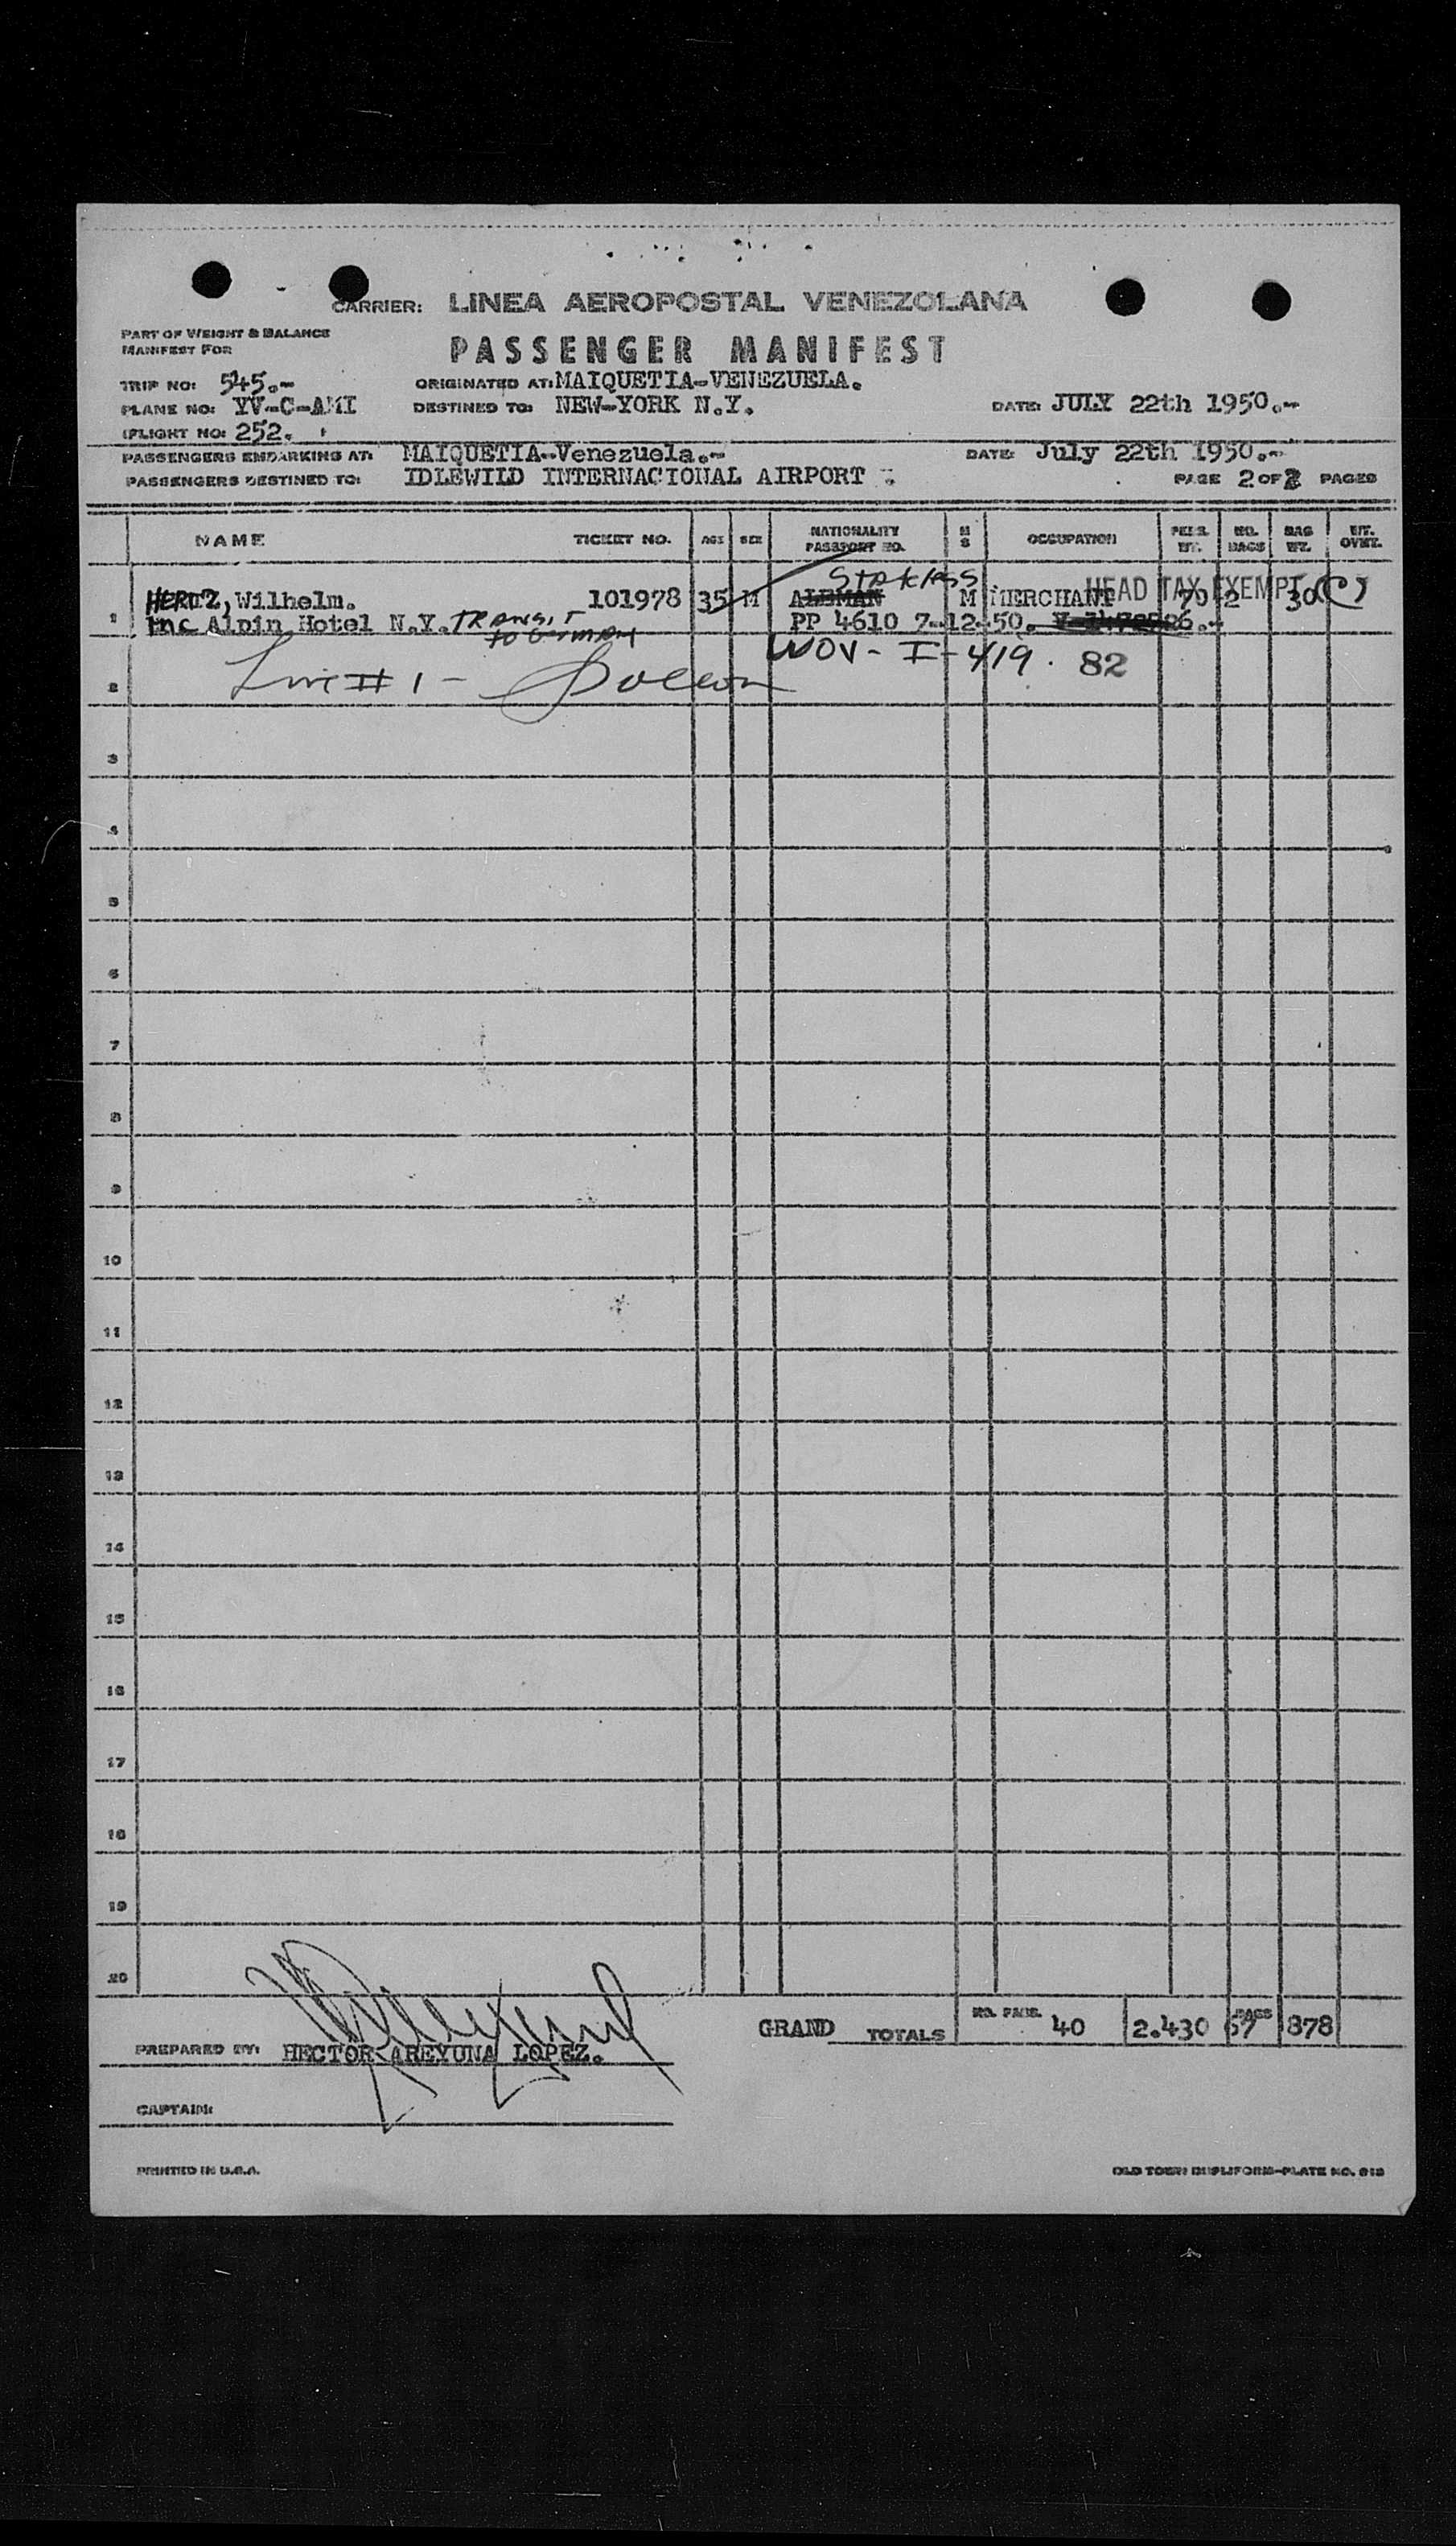 CARRIER: LINEA AEROPOSTAL VENEZOLANA
PART OF WEIGHT & BALANCE
MANIFEST FOR
PASSENGER MANIFEST
TRIP NO: 545.- ORIGINATED AT: MAIQUETIA-VENEZUELA.
PLANE NO: YV-C-AMI DESTINED TO: NEW-YORK N.Y. DATE: JULY 22th 1950.-
FLIGHT NO: 252.
PASSENGERS EMBARKING AT: MAIQUETIA-Venezuela.- DATE: July 22th 1950.-
PASSENGERS DESTINED TO: IDLEWILD INTERNACIONAL AIRPORT PAGE 2 OF 2 PAGES
NAME TICKET NO. AGE SEX NATIONALITY PASSPORT NO. M S OCCUPATION PERS. WT. NO. BAGS BAG WT. WT. OVWT.
Stateless
1 HERTZ, Wilhelm. 101978 35 M ALEMAN M MERCHANT HEAD TAX EXEMPT (C) 79 2 30
Mc Alpin Hotel N.Y. TRANSIT to Germany PP 4610 7-12-50.
WOV - I - 419. 82
2 Line # 1 -
3
4
5
6
7
8
9
10
11
12
13
14
15
16
17
18
19
20
GRAND TOTALS NO. PASS. 40 2.430 BAGS 67 878
PREPARED BY: HECTOR AREYUNA LOPEZ.
CAPTAIN:
PRINTED IN U.S.A. OLD TOWN DUPLIFORM-PLATE NO. 613